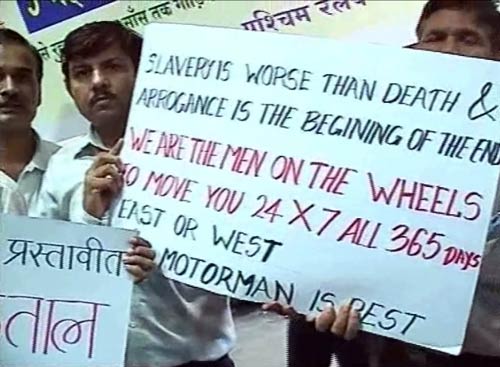 साँस तक
पश्चिम रेलवे
SLAVERY IS WORSE THAN DEATH &
ARROGANCE IS THE BEGINING OF THE END
WE ARE THE MEN ON THE WHEELS
TO MOVE YOU 24 X 7 ALL 365 DAYS
EAST OR WEST
MOTORMAN IS BEST
प्रस्तावीत